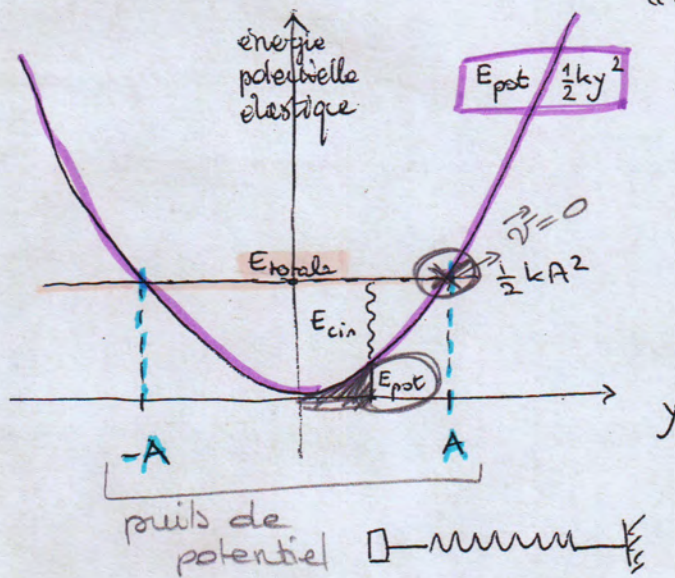 énergie
potentielle
élastique
Epot ½ky²
v⃗ = 0
Etotale
½kA²
Ecin
Epot
y
-A
A
puits de
potentiel